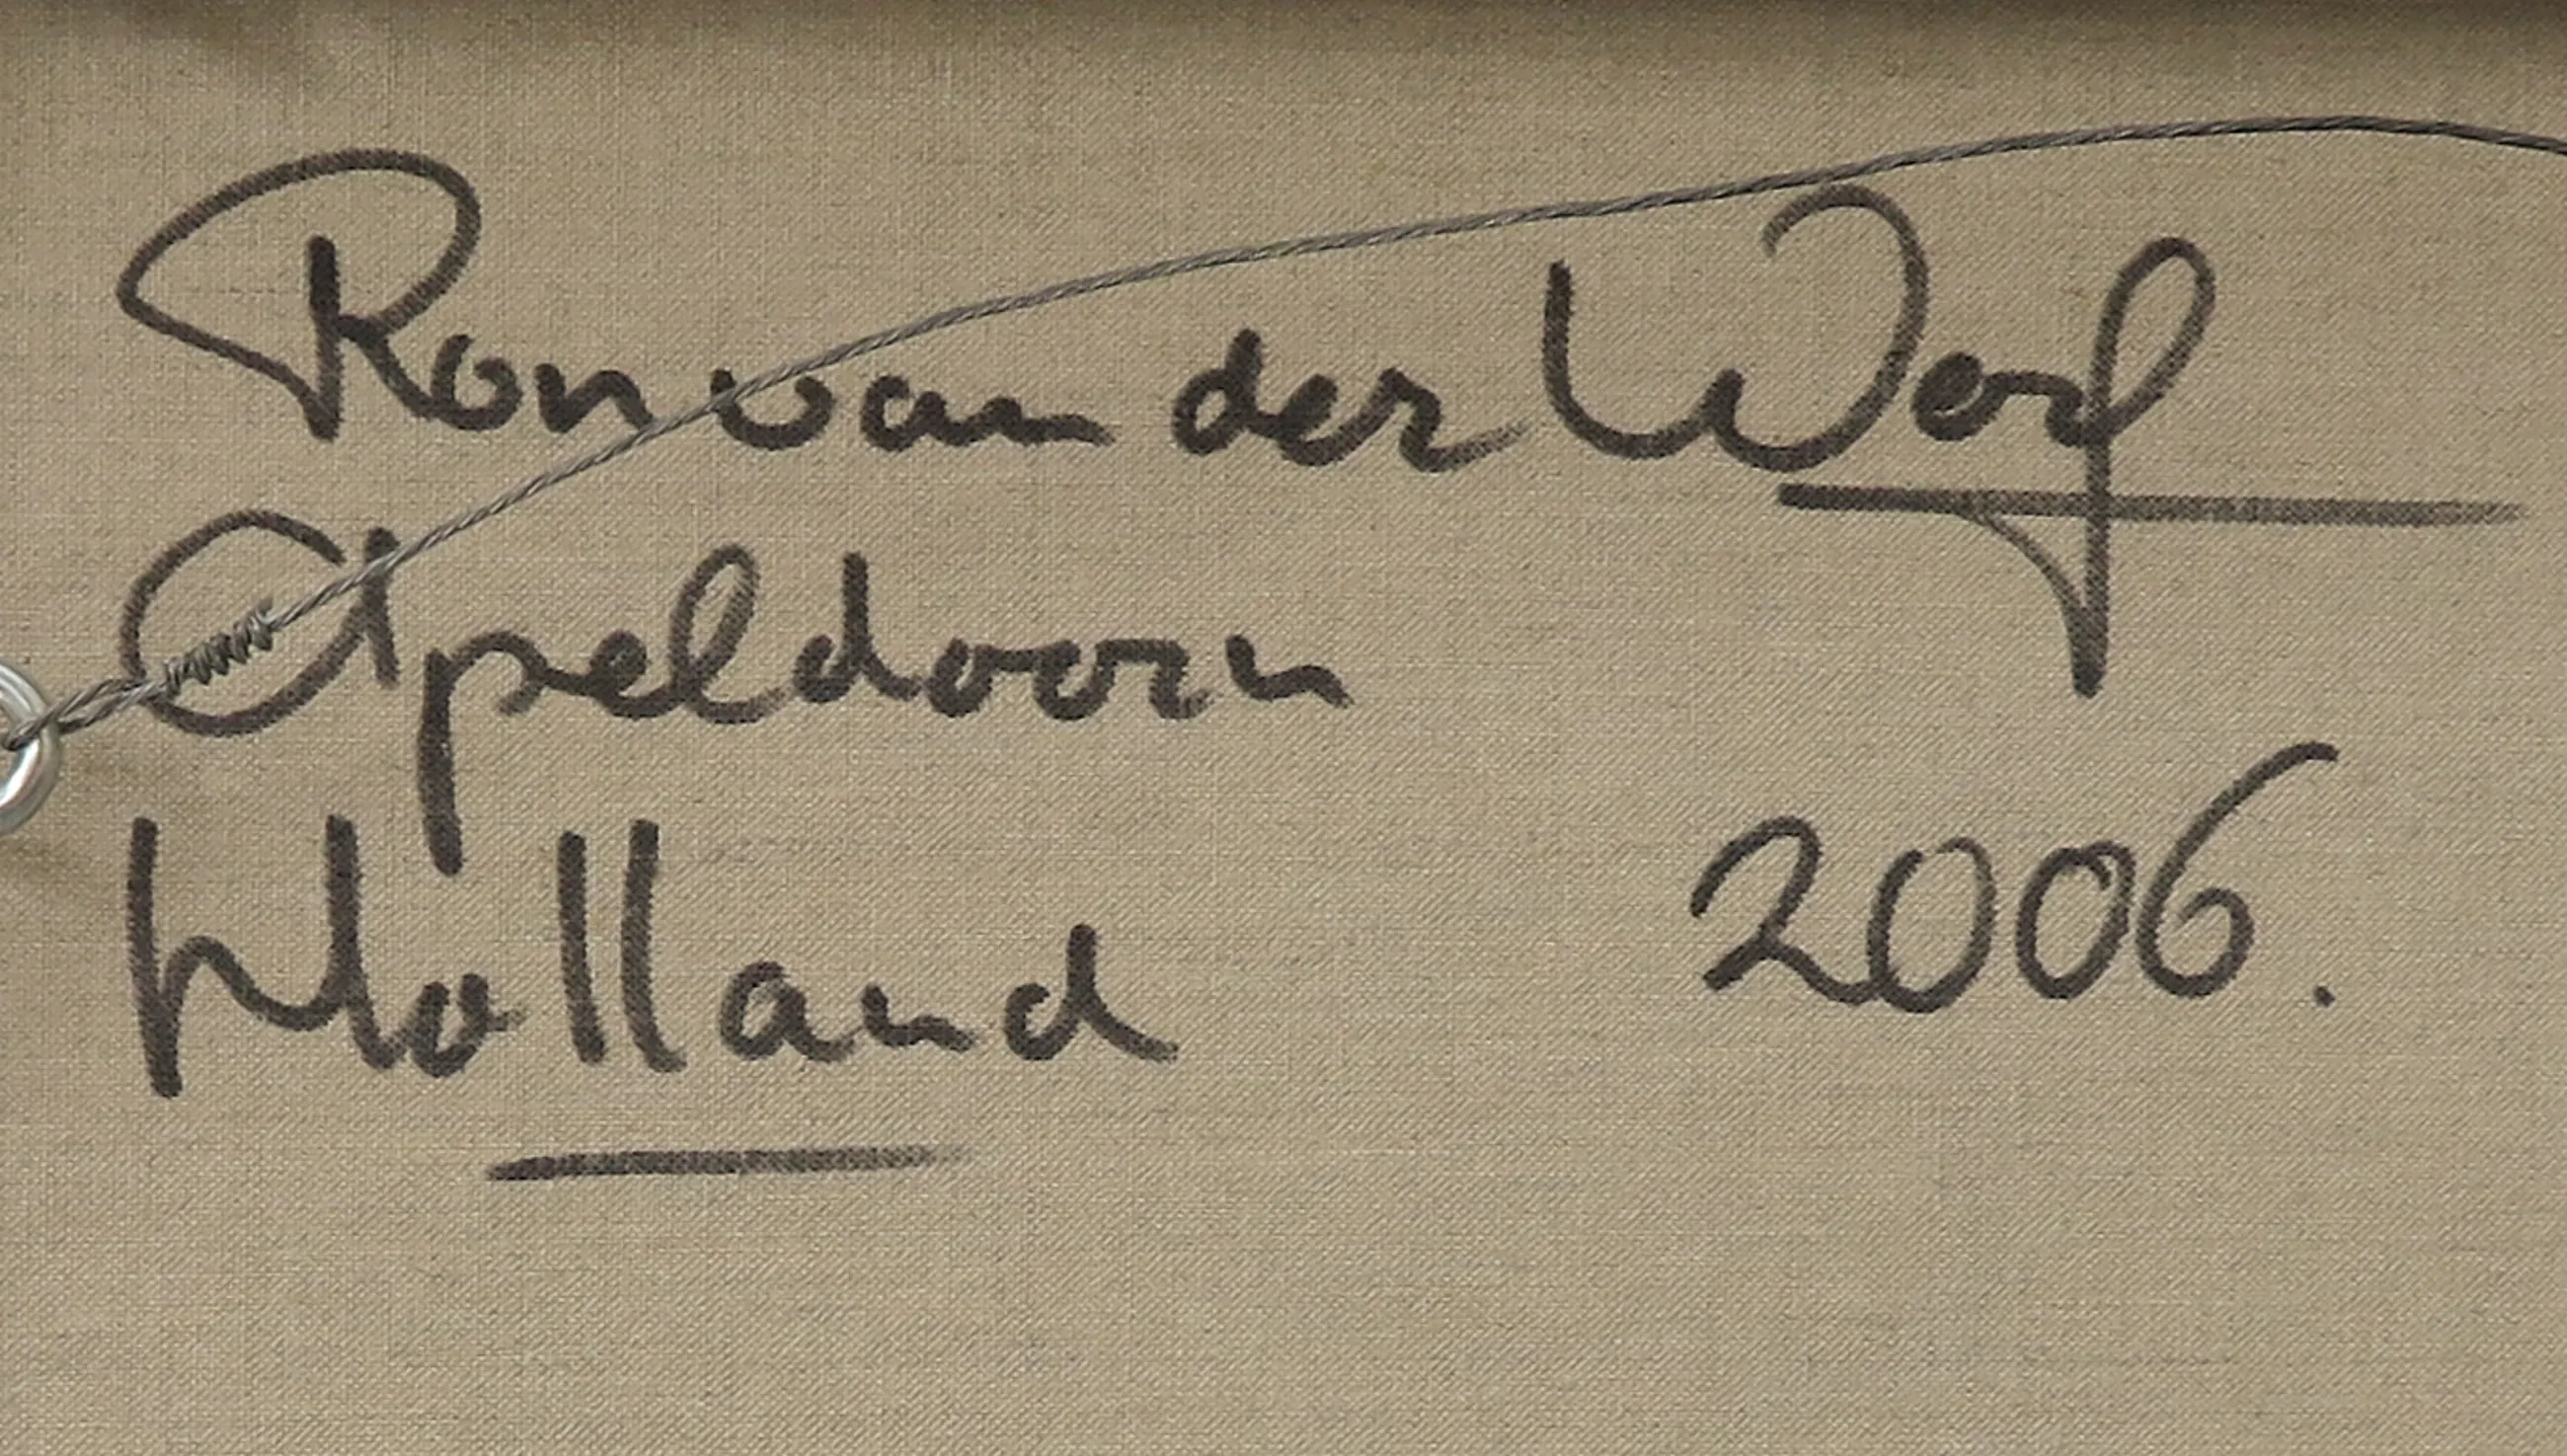 Ron van der Werf
Apeldoorn
Holland
2006.